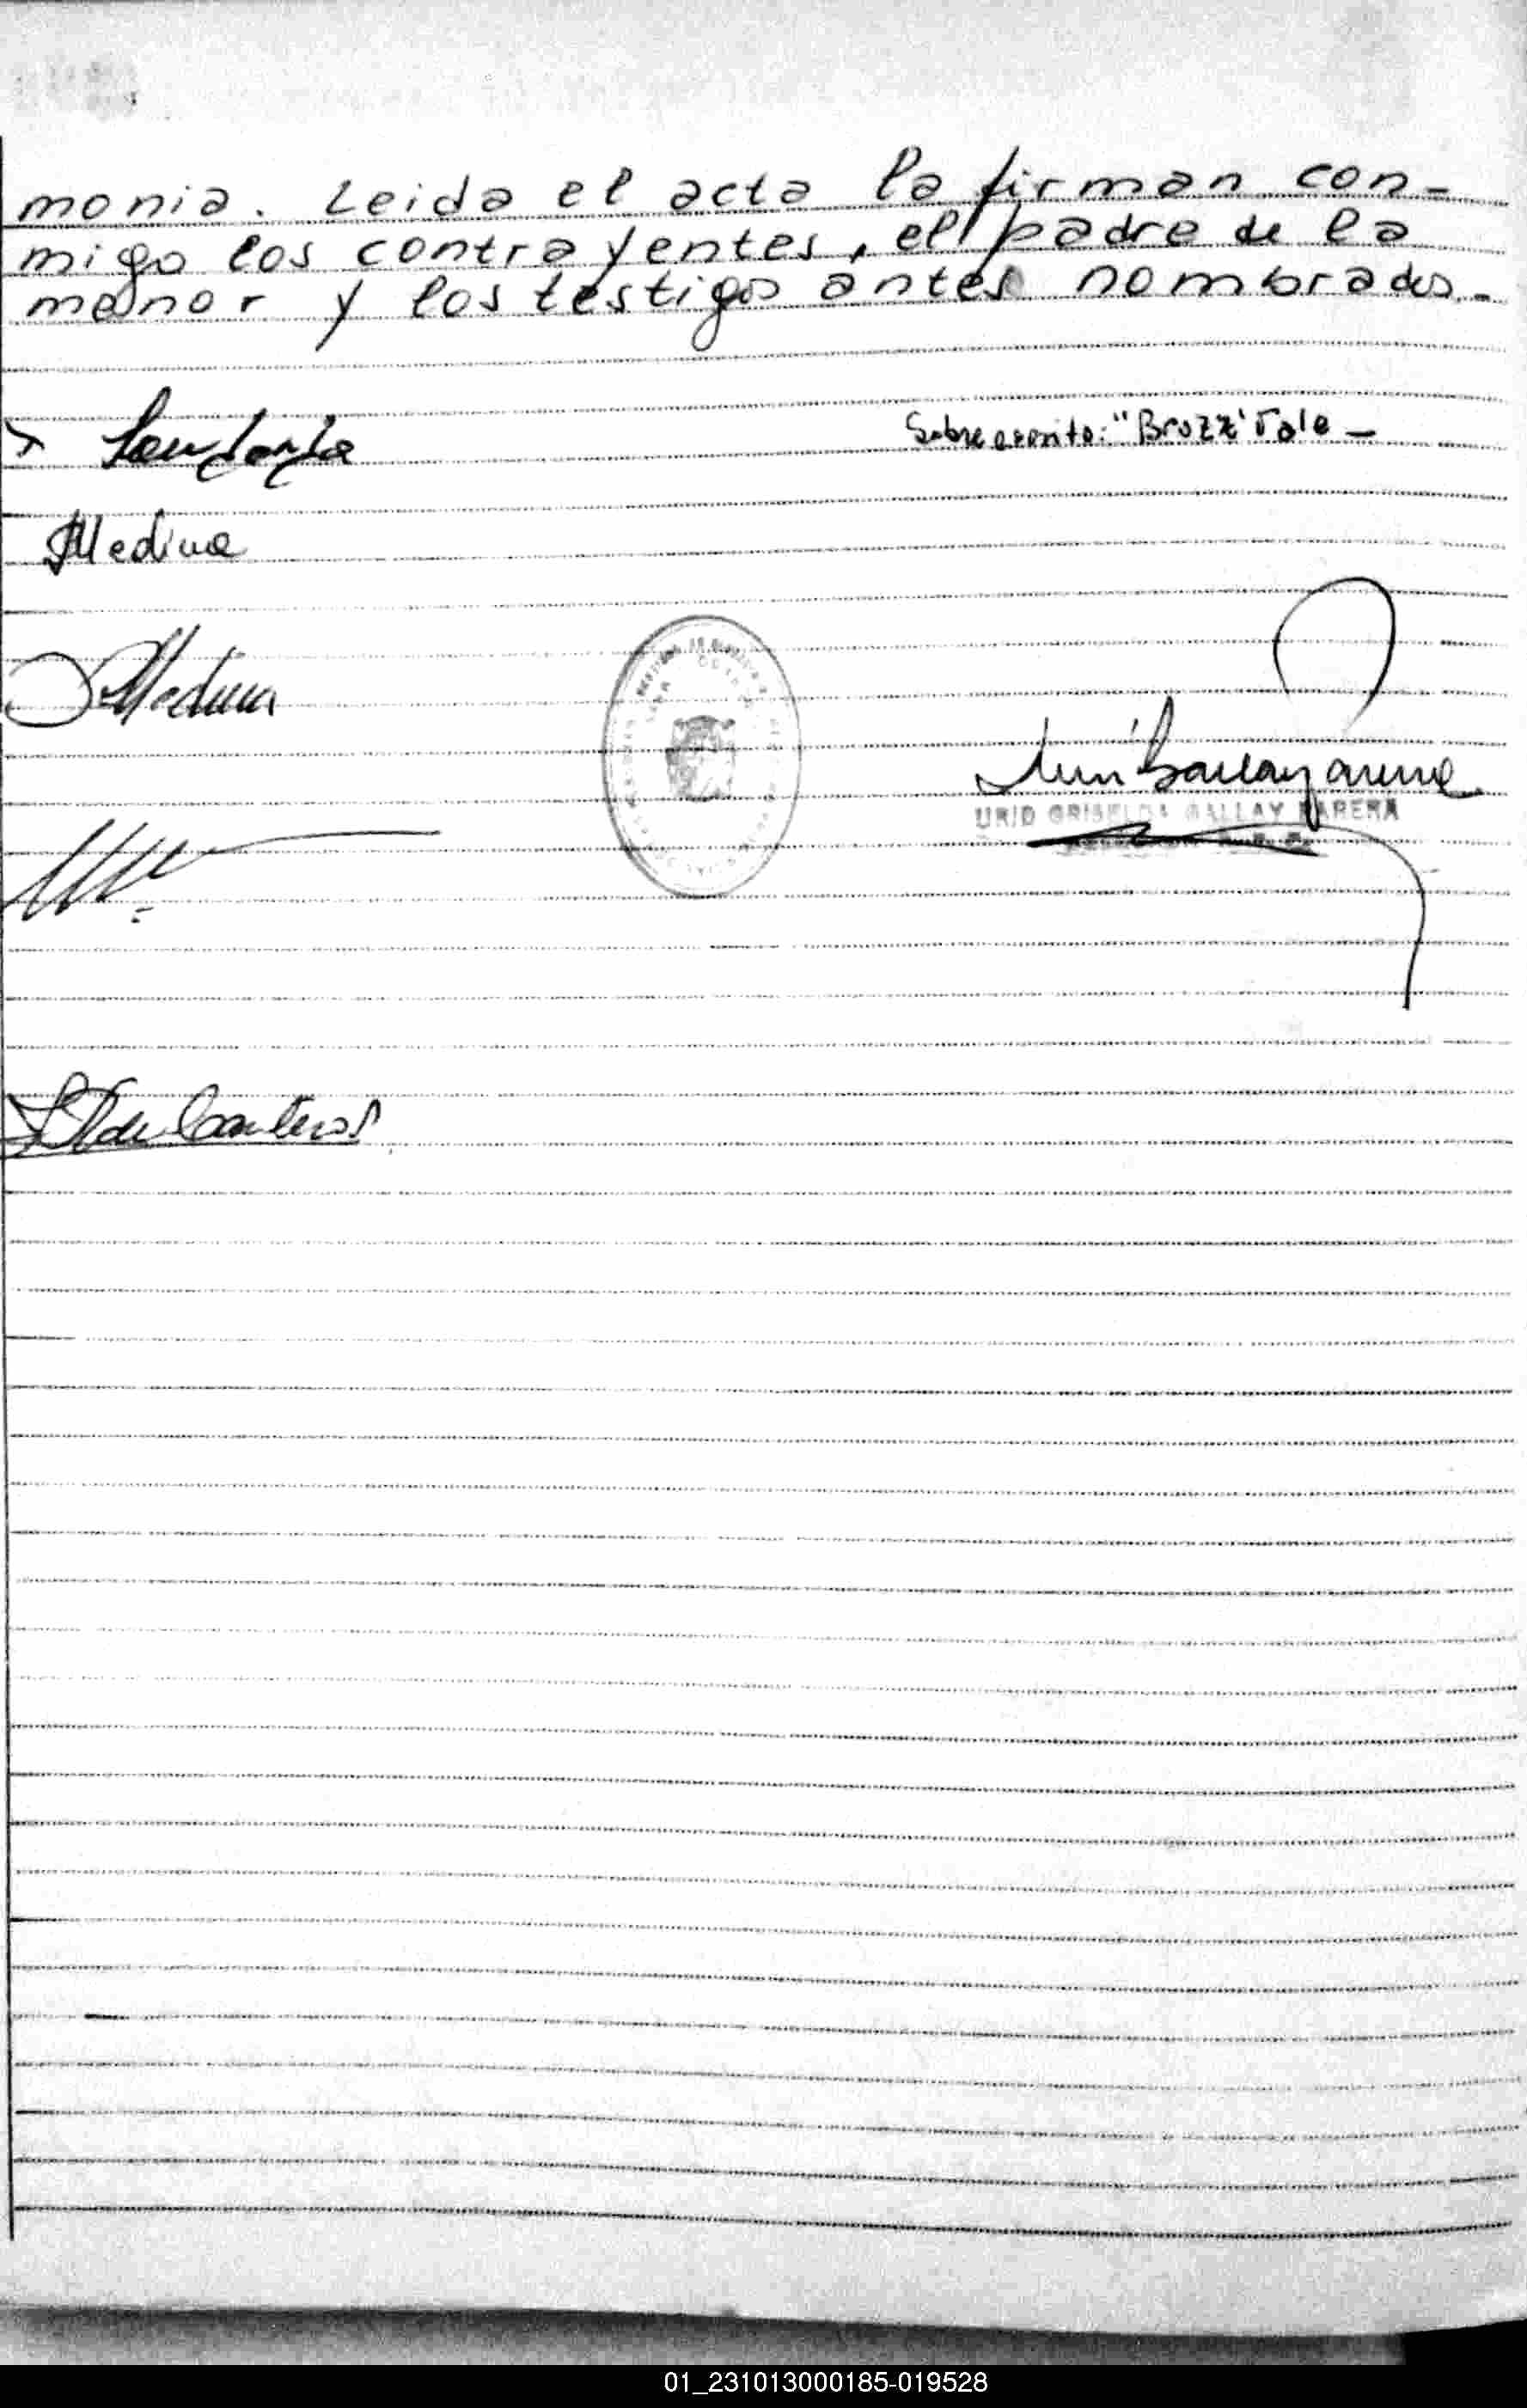 monia. Leida el acta la firman con-
migo los contrayentes, el padre de la
menor y los testigos antes nombrados.-
Sobre escrito: "Brozz" Vale -
Medina
Medina
GRISELDA GALLAY
de Canteros
01_231013000185-019528